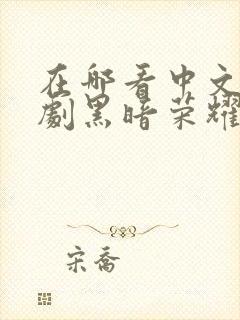 在哪看中文
劇黑暗荣耀
宋喬